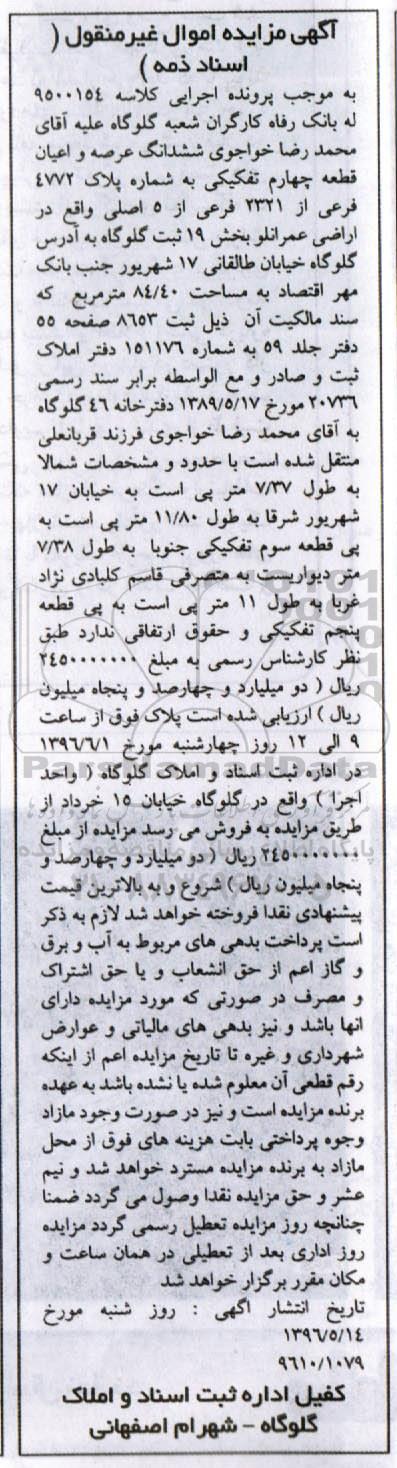 آگهی مزایده اموال غیرمنقول (
اسناد ذمه )
به موجب پرونده اجرایی کلاسه ۹۵۰۰۱۵۴
له بانک رفاه کارگران شعبه گلوگاه علیه آقای
محمد رضا خواجوی ششدانگ عرصه و اعیان
قطعه چهارم تفکیکی به شماره پلاک ۴۷۷۲
فرعی از ۲۳۲۱ فرعی از ۵ اصلی واقع در
اراضی عمرانلو بخش ۱۹ ثبت گلوگاه به آدرس
گلوگاه خیابان طالقانی ۱۷ شهریور جنب بانک
مهر اقتصاد به مساحت ۸۴/۴۰ مترمربع که
سند مالکیت آن ذیل ثبت ۸۶۵۳ صفحه ۵۵
دفتر جلد ۵۹ به شماره ۱۵۱۱۷۶ دفتر املاک
ثبت و صادر و مع الواسطه برابر سند رسمی
۲۰۷۳۶ مورخ ۱۳۸۹/۵/۱۷ دفترخانه ۴۶ گلوگاه
به آقای محمد رضا خواجوی فرزند قربانعلی
منتقل شده است با حدود و مشخصات شمالا
به طول ۷/۳۷ متر پی است به خیابان ۱۷
شهریور شرقا به طول ۱۱/۸۰ متر پی است به
پی قطعه سوم تفکیکی جنوبا به طول ۷/۳۸
متر دیواریست به متصرفی قاسم کلبادی نژاد
غربا به طول ۱۱ متر پی است به پی قطعه
پنجم تفکیکی و حقوق ارتفاقی ندارد طبق
نظر کارشناس رسمی به مبلغ ۲۴۵۰۰۰۰۰۰۰
ریال ( دو میلیارد و چهارصد و پنجاه میلیون
ریال ) ارزیابی شده است پلاک فوق از ساعت
۹ الی ۱۲ روز چهارشنبه مورخ ۱۳۹۶/۶/۱
در اداره ثبت اسناد و املاک گلوگاه ( واحد
اجرا ) واقع در گلوگاه خیابان ۱۵ خرداد از
طریق مزایده به فروش می رسد مزایده از مبلغ
۲۴۵۰۰۰۰۰۰۰ ریال (دو میلیارد و چهارصد و
پنجاه میلیون ریال ) شروع و به بالاترین قیمت
پیشنهادی نقدا فروخته خواهد شد لازم به ذکر
است پرداخت بدهی های مربوط به آب و برق
و گاز اعم از حق انشعاب و یا حق اشتراک
و مصرف در صورتی که مورد مزایده دارای
انها باشد و نیز بدهی های مالیاتی و عوارض
شهرداری و غیره تا تاریخ مزایده اعم از اینکه
رقم قطعی آن معلوم شده یا نشده باشد به عهده
برنده مزایده است و نیز در صورت وجود مازاد
وجوه پرداختی بابت هزینه های فوق از محل
مازاد به برنده مزایده مسترد خواهد شد و نیم
عشر و حق مزایده نقدا وصول می گردد ضمنا
چنانچه روز مزایده تعطیل رسمی گردد مزایده
روز اداری بعد از تعطیلی در همان ساعت و
مکان مقرر برگزار خواهد شد
تاریخ انتشار آگهی : روز شنبه مورخ
۱۳۹۶/۵/۱۴
۹۶۱۰/۱۰۷۹
کفیل اداره ثبت اسناد و املاک
گلوگاه – شهرام اصفهانی
ParsNamadData